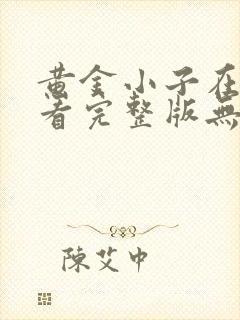 黄金小子在
看完整版無
陳艾中